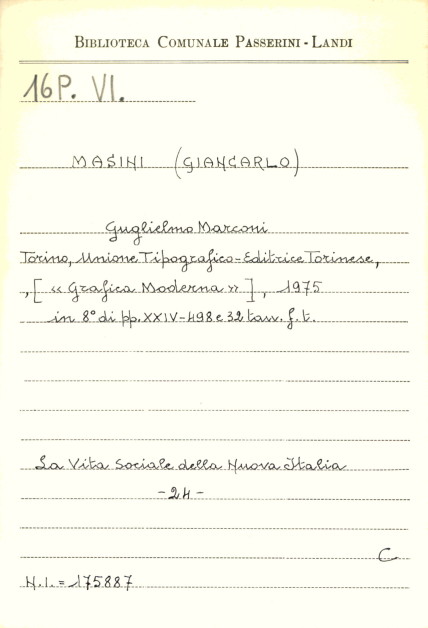 BIBLIOTECA COMUNALE PASSERINI - LANDI
16 P. VI.
MASINI (GIANCARLO)
Guglielmo Marconi
Torino, Unione Tipografico-Editrice Torinese,
, [ « Grafica Moderna » ] , 1975
in 8° di pp. XXIV-498 e 32 tavv. f. t.
La Vita Sociale della Nuova Italia
- 24 -
C
N.I. = 175887